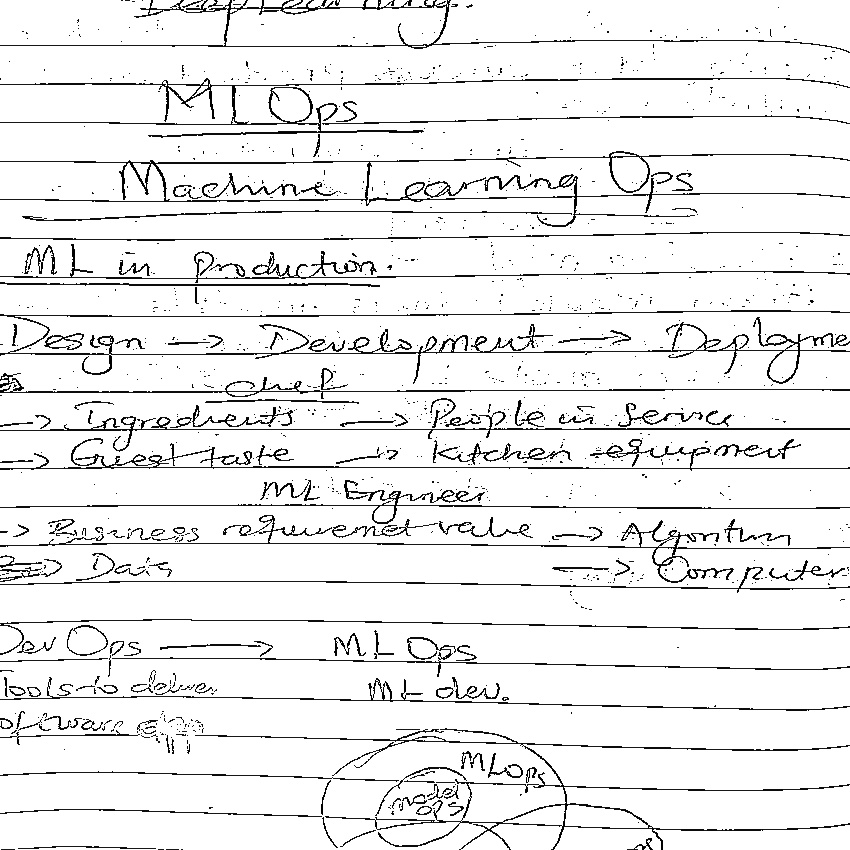 Deep Learning.
ML Ops
Machine Learning Ops
ML in production.
Design → Development → Deployme
chef
→ Ingredients → People in Service
→ Guest taste → Kitchen equipment
ML Engineer
→ Business requirement value → Algorithm
→ Data → Computer
DevOps → ML Ops
Tools to deliver ML dev.
oftware app
MLOps
model
OPS